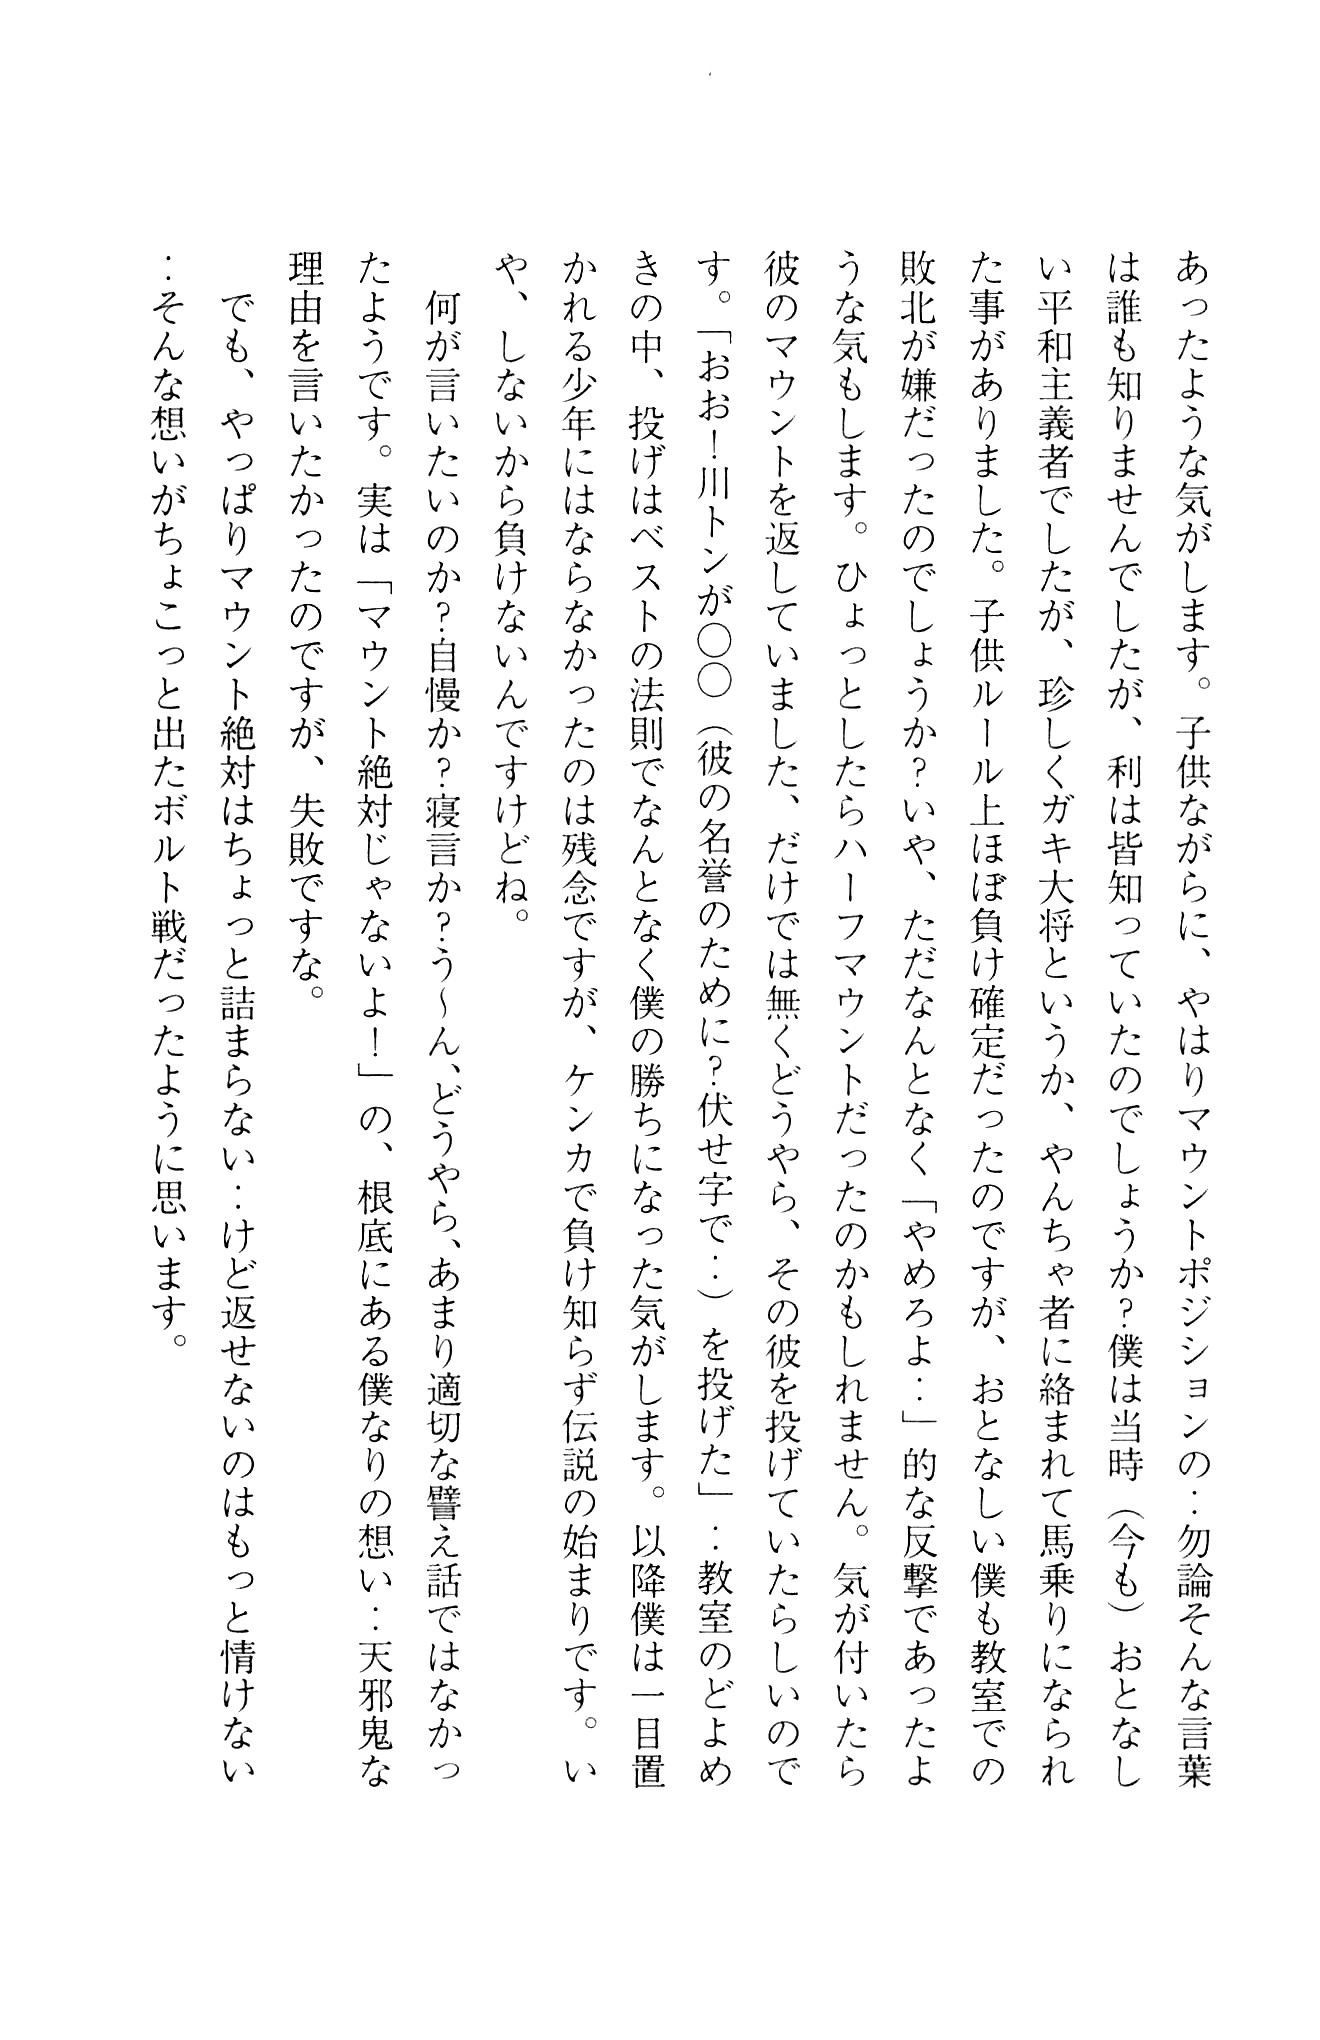 あったような気がします。子供ながらに、やはりマウントポジションの‥勿論そんな言葉
は誰も知りませんでしたが、利は皆知っていたのでしょうか?僕は当時（今も）おとなし
い平和主義者でしたが、珍しくガキ大将というか、やんちゃ者に絡まれて馬乗りになられ
た事がありました。子供ルール上ほぼ負け確定だったのですが、おとなしい僕も教室での
敗北が嫌だったのでしょうか?いや、ただなんとなく「やめろよ‥」的な反撃であったよ
うな気もします。ひょっとしたらハーフマウントだったのかもしれません。気が付いたら
彼のマウントを返していました、だけでは無くどうやら、その彼を投げていたらしいので
す。「おお！川トンが〇〇（彼の名誉のために?伏せ字で‥）を投げた」‥教室のどよめ
きの中、投げはベストの法則でなんとなく僕の勝ちになった気がします。以降僕は一目置
かれる少年にはならなかったのは残念ですが、ケンカで負け知らず伝説の始まりです。い
や、しないから負けないんですけどね。
何が言いたいのか?自慢か?寝言か?う～ん、どうやら、あまり適切な譬え話ではなかっ
たようです。実は「マウント絶対じゃないよ！」の、根底にある僕なりの想い‥天邪鬼な
理由を言いたかったのですが、失敗ですな。
でも、やっぱりマウント絶対はちょっと詰まらない‥けど返せないのはもっと情けない
‥そんな想いがちょこっと出たボルト戦だったように思います。